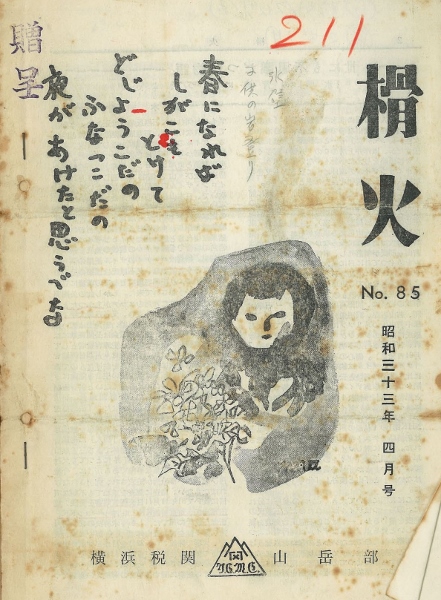 211
贈呈
榾火
No. 85
昭和三十三年 四月号
春になれば
しがこも
とけて
どじょうこだの
ふなっこだの
夜があけたと思うべな
横浜税関 山岳部
Y.C.M.C.